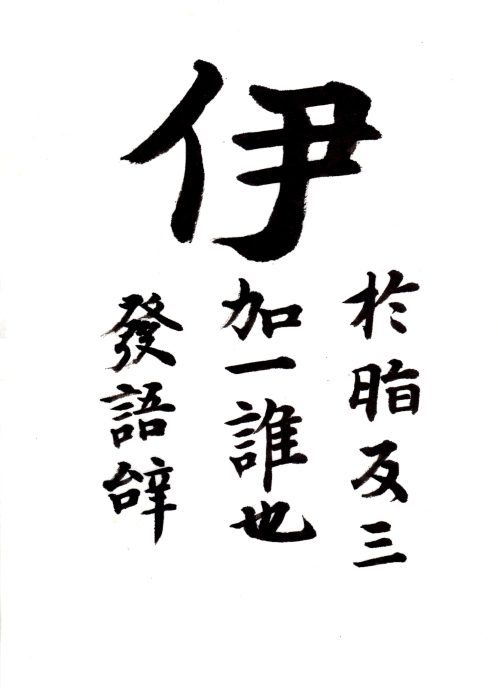 伊
於脂反三
加一誰也
發語辝